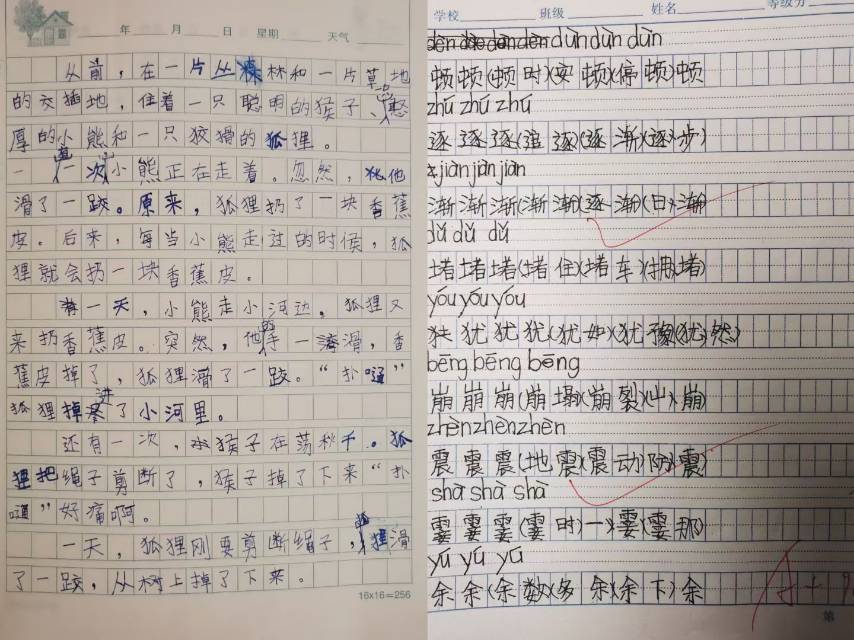 年 月 日 星期 天气
从前，在一片丛林和一片草地
的交插地，住着一只聪明的猴子、憨
厚的小熊和一只狡猾的狐狸。
一次小熊正在走着。忽然，他
滑了一跤。原来，狐狸扔了一块香蕉
皮。后来，每当小熊走过的时候，狐
狸就会扔一块香蕉皮。
有一天，小熊走小河边，狐狸又
来扔香蕉皮。突然，他手一滑，香
蕉皮掉了，狐狸滑了一跤。“扑嗵”
狐狸掉进了小河里。
还有一次，猴子在荡秋千。狐
狸把绳子剪断了，猴子掉了下来“扑
嗵”好痛啊。
一天，狐狸刚要剪断绳子，狐狸滑
了一跤，从树上掉了下来。
16x16=256
学校 班级 姓名 等级分
dùn dùn dùn
顿顿(顿时)(安顿)(停顿)顿
zhú zhú zhú
逐逐逐(追逐)(逐渐)(逐步)
jiàn jiàn jiàn
渐渐渐(渐渐)(逐渐)(日渐)
dǔ dǔ dǔ
堵堵堵(堵住)(堵车)(拥堵)
yóu yóu yóu
犹犹犹(犹如)(犹豫)(犹然)
bēng bēng bēng
崩崩崩(崩塌)(崩裂)(山崩)
zhèn zhèn zhèn
震震震(地震)(震动)(防震)
shà shà shà
霎霎霎(霎时)(一霎)(霎那)
yú yú yú
余余(余数)(多余)(余下)余
第